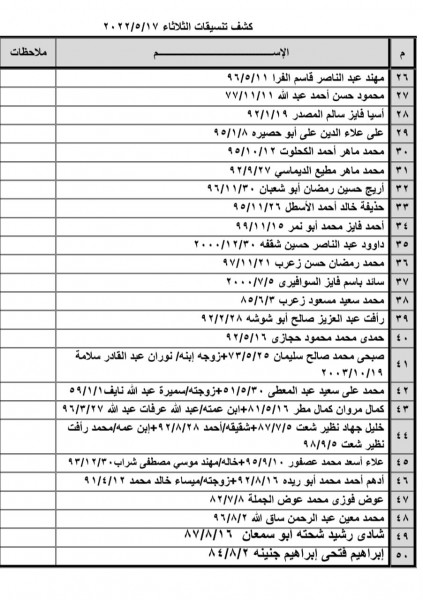 كشف تنسيقات الثلاثاء ٢٠٢٢/٥/١٧
م الإســـم ملاحظات
٢٦ مهند عبد الناصر قاسم الفرا ٩٦/٥/١١
٢٧ محمود حسن أحمد عبد الله ٧٧/١١/١١
٢٨ أسيا فايز سالم المصدر ٩٢/١/١٩
٢٩ على علاء الدين على أبو حصيره ٩٥/١/٨
٣٠ محمد ماهر أحمد الكحلوت ٩٥/١٠/١٢
٣١ محمد ماهر مطيع الديماسي ٩٢/٩/٢٧
٣٢ أريج حسين رمضان أبو شعبان ٩٦/١١/٣٠
٣٣ حذيفة خالد أحمد الأسطل ٩٥/١١/٢٦
٣٤ أحمد فايز محمد أبو نمر ٩٩/١١/١٥
٣٥ داوود عبد الناصر حسين شقفه ٢٠٠٠/١٢/٣٠
٣٦ محمد رمضان حسن زعرب ٩٧/١١/٢١
٣٧ سائد باسم فايز السوافيرى ٢٠٠٠/٧/٥
٣٨ محمد سعيد مسعود زعرب ٨٥/٦/٣
٣٩ رأفت عبد العزيز صالح أبو شوشه ٩٢/٢/٢٨
٤٠ حمدى محمد محمود حجازى ٩٢/٥/١٦
٤١ صبحى محمد صالح سليمان ٧٣/٥/٢٥+زوجه إبنه/ نوران عبد القادر سلامة
٢٠٠٣/١٠/١٩
٤٢ محمد على سعيد عبد المعطى ٥١/٥/٣٠+زوجته/سميرة عبد الله نايف٥٩/١/١
٤٣ كمال مروان كمال مطر ٨١/٥/١٦+ابن عمته/عبد الله عرفات عبد الله ٩٦/٣/٢٧
٤٤ خليل جهاد نظير شعت ٨٧/٧/٥+شقيقه/أحمد ٩٢/٨/٢٨+إبن عمه/محمد رأفت
نظير شعت ٩٨/٩/٥
٤٥ علاء أسعد محمد عصفور ٩٥/٩/١٠+خاله/مهند موسي مصطفى شراب٩٣/١٢/٣٠
٤٦ أدهم أحمد محمد أبو ريده ٩٢/٨/١٦+زوجته/ميساء خالد محمد ٩١/٤/١٢
٤٧ عوض فوزى محمد عوض الجملة ٨٢/٧/٨
٤٨ محمد معين عبد الرحمن ساق الله ٩٦/٨/٢
٤٩ شادى رشيد شحته أبو سمعان ٨٧/٨/١٦
٥٠ إبراهيم فتحى إبراهيم جنينه ٨٤/٨/٢